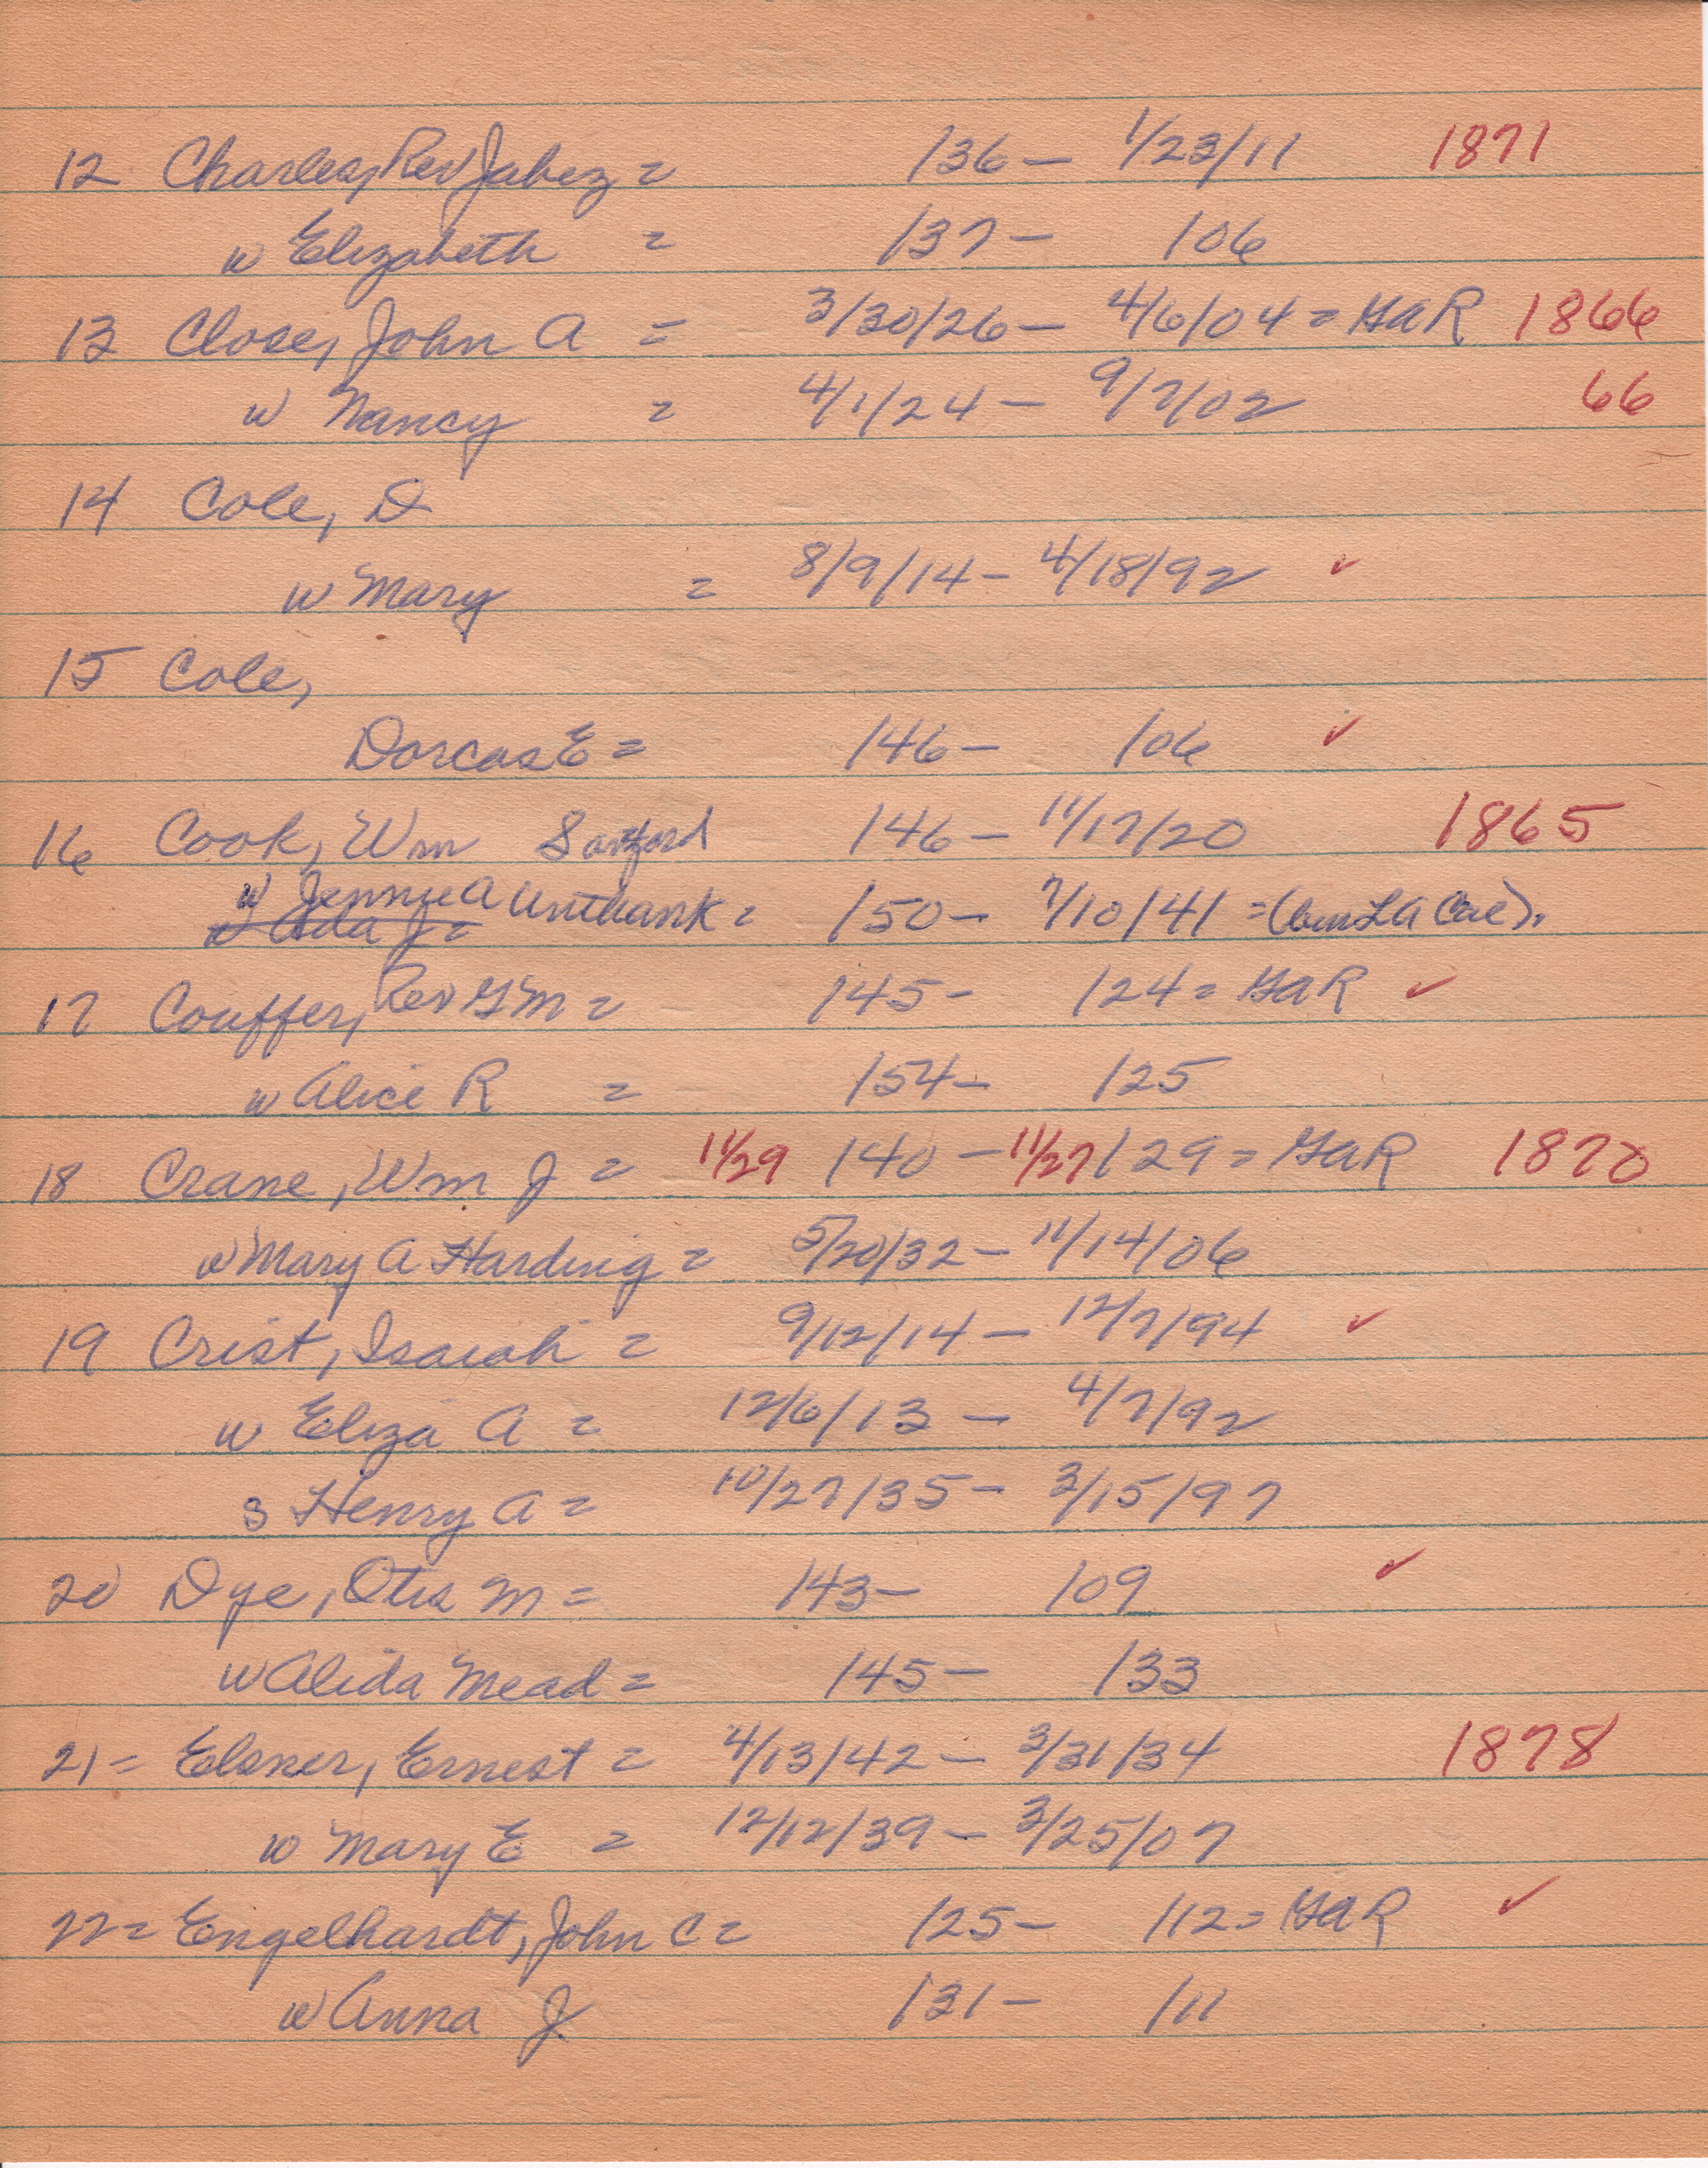 12 Charles, Rev Jabez = /36 – 1/23/11 1871
w Elizabeth = /37 – /06
13 Close, John A = 3/30/26 – 4/6/04 = GAR 1866
w Nancy = 4/1/24 – 9/7/02 66
14 Cole, D
w Mary = 8/9/14 – 4/18/92 ✓
15 Cole,
Dorcas E = /46 – /06 ✓
16 Cook, Wm Sanford /46 – 11/17/20 1865
w Jennie A Unthank = /50 – 7/10/41 = (bur LA Cal).
Ada J =
17 Couffer, Rev GM = /45 – /24 = GAR ✓
w Alice R = /54 – /25
18 Crane, Wm J = 11/29 /40 – 11/27/29 = GAR 1870
w Mary A Harding = 5/20/32 – 11/14/06
19 Crist, Isaiah = 9/12/14 – 12/7/94 ✓
w Eliza A = 12/6/13 – 4/7/92
s Henry A = 10/27/35 – 3/15/97
20 Dye, Otis M = /43 – /09 ✓
w Alida Mead = /45 – /33
21 = Elsner, Ernest = 4/13/42 – 3/31/34 1878
w Mary E = 12/12/39 – 3/25/07
22 = Engelhardt, John C = /25 – /12 = GAR ✓
w Anna J /31 – /11